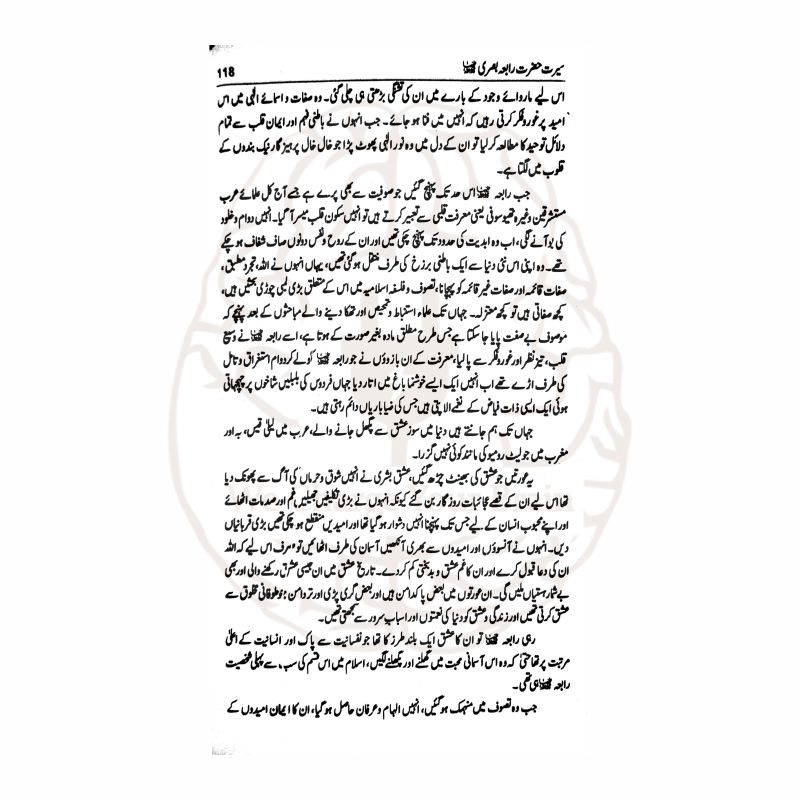 سیرت حضرت رابعہ بصری
118
اس لیے ماروائے وجود کے بارے میں ان کی تشنگی بڑھتی ہی چلی گئی۔ وہ صفات و اسمائے الٰہی میں اس
امید پر غور و فکر کرتی رہیں کہ انہیں میں فنا ہو جائے۔ جب انہوں نے باطنی فہم اور ایمان قلب سے تمام
دلائل توحید کا مطالعہ کر لیا تو ان کے دل میں وہ نور الٰہی پھوٹ پڑا جو خال خال پرہیز گار نیک بندوں کے
قلوب میں لگتا ہے۔
جب رابعہ اس حد تک پہنچ گئیں جو صوفیت سے بھی پرے ہے جسے آج کل علمائے عرب
مستشرقین وغیرہ تھیوسوفی یعنی معرفت قلبی سے تعبیر کرتے ہیں تو انہیں سکون قلب میسر آ گیا۔ انہیں دوام و خلود
کی بو آنے لگی، اب وہ ابدیت کی حدود تک پہنچ چکی تھیں اور ان کے روح و نفس دونوں صاف شفاف ہو چکے
تھے۔ وہ اپنی اس نئی دنیا سے ایک باطنی برزخ کی طرف منتقل ہو گئی تھیں، یہاں انہوں نے اللہ، تجرد مطبق،
صفات قائمہ اور صفات غیر قائمہ کو پہچانا، تصوف و فلسفہ اسلامیہ میں اس کے متعلق بڑی لمبی چوڑی بحثیں ہیں،
کچھ صفاتی ہیں تو کچھ معتزلہ۔ جہاں تک علماء استنباط و تمحیص اور تھکا دینے والے مباحثوں کے بعد پہنچے کہ
موصوف بے صفت پایا جا سکتا ہے جس طرح مطلق مادہ بغیر صورت کے ہوتا ہے، اسے رابعہ نے وسیع
قلب، تیز نظر اور غور و فکر سے پا لیا، معرفت کے ان بازوؤں نے جو رابعہ کو لے کر دوام استغراق و تامل
کی طرف اڑے تھے اب انہیں ایک ایسے خوشنما باغ میں اتار دیا جہاں فردوس کی بلبلیں شاخوں پر چہچہاتی
ہوئی ایک ایسی ذات فیاض کے نغمے الاپتی ہیں جس کی ضیا باریاں دائم رہتی ہیں۔
جہاں تک ہم جانتے ہیں دنیا میں سوز عشق سے پگھل جانے والے، عرب میں لیلٰی قیس، یہ اور
مغرب میں جولیٹ رومیو کی مانند کوئی نہیں گزرا۔
یہ عورتیں جو عشق کی بھینٹ چڑھ گئیں، عشق بشری نے انہیں شوق و حرماں کی آگ سے پھونک دیا
تھا اس لیے ان کے قصے عجائبات روزگار بن گئے کیونکہ انہوں نے بڑی تکلیفیں جھیلیں غم اور صدمات اٹھائے
اور اپنے محبوب انسان کے لیے جس تک پہنچنا انہیں دشوار ہو گیا تھا اور امیدیں منقطع ہو چکی تھیں بڑی قربانیاں
دیں۔ انہوں نے آنسوؤں اور امیدوں سے بھری آنکھیں آسمان کی طرف اٹھائیں تو صرف اس لیے کہ اللہ
ان کی دعا قبول کرے اور ان کا غم عشق و بدبختی کم کر دے۔ تاریخ عشق میں ان جیسی عشق رکھنے والی اور بھی
بے شمار ہستیاں ملیں گی۔ ان عورتوں میں بعض پاکدامن ہیں اور بعض گری پڑی اور تر دامن؛ وہ طوفانی مخلوق سے
عشق کرتی تھیں اور زندگی و عشق کو دنیا کی نعمتوں اور اسباب سرور سے سمجھتی تھیں۔
رہی رابعہ تو ان کا عشق ایک بلند طرز کا تھا جو نفسانیت سے پاک اور انسانیت کے اعلیٰ
مرتبت پر تھا حتیٰ کہ وہ اس آسمانی محبت میں گھلنے اور پگھلنے لگیں، اسلام میں اس قسم کی سب سے پہلی شخصیت
رابعہ ہی تھی۔
جب وہ تصوف میں منہمک ہو گئیں، انہیں الہام و عرفان حاصل ہو گیا، ان کا ایمان امیدوں کے